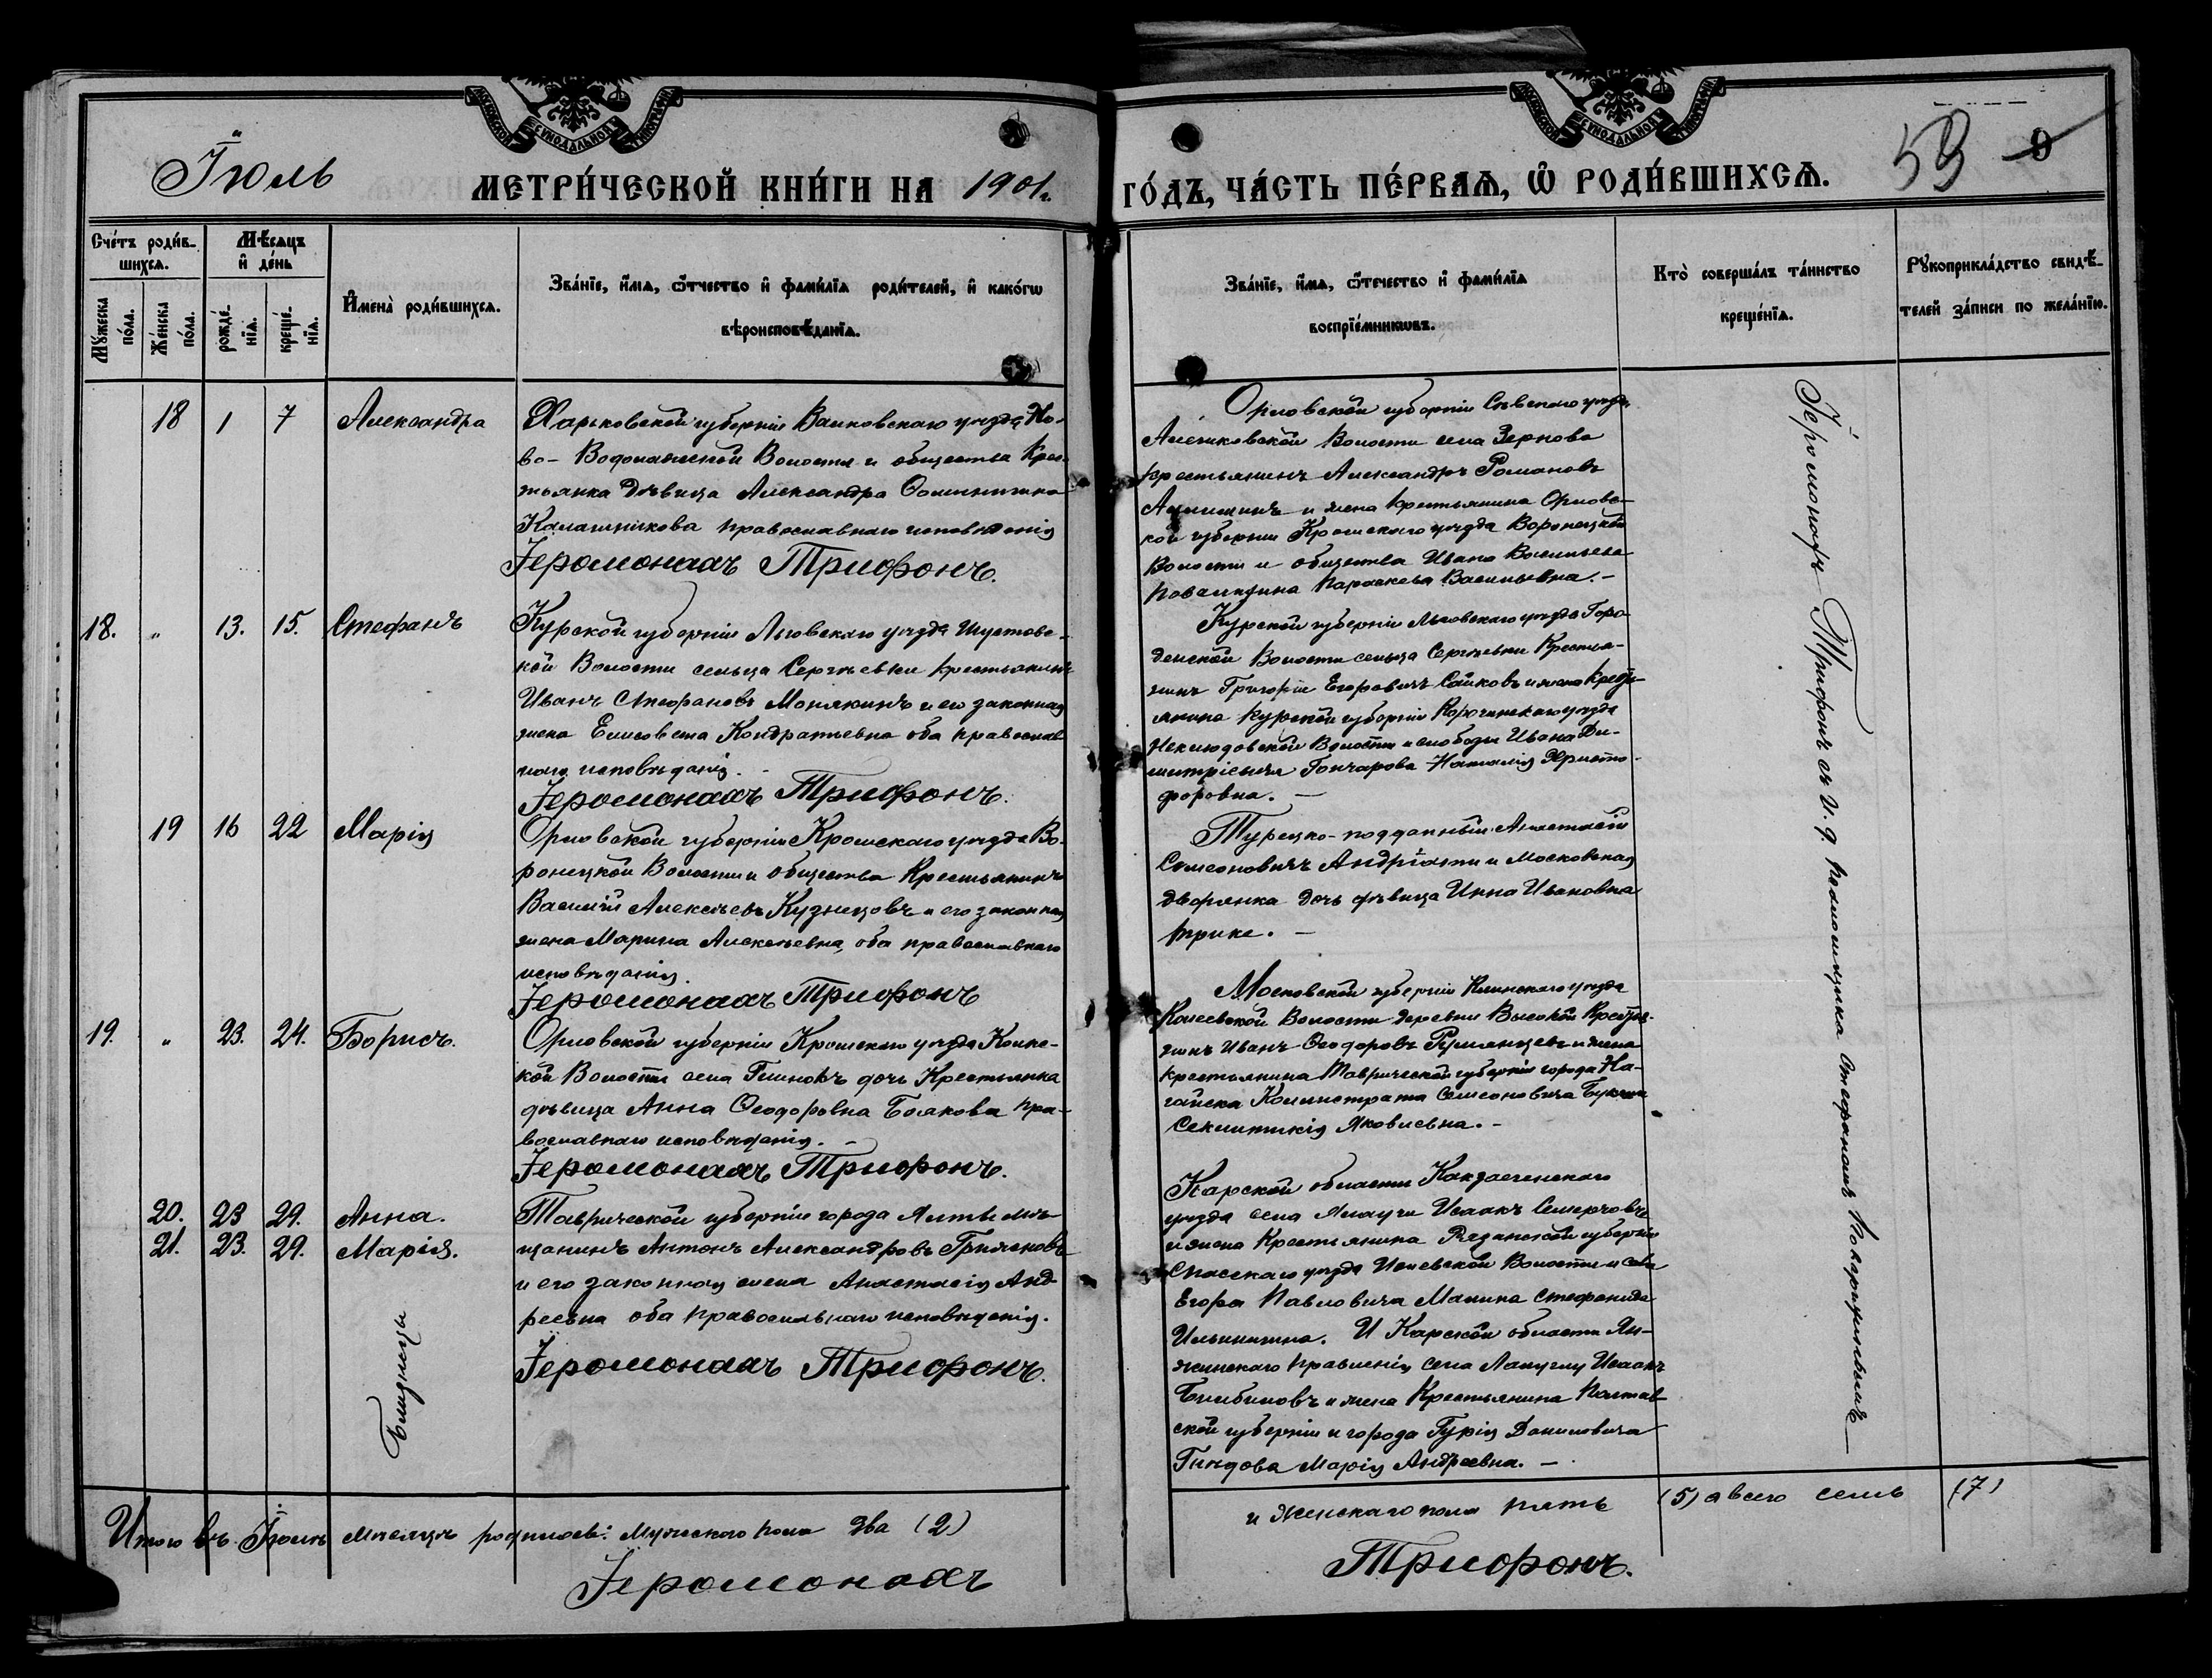 Іюль
МЕТРИ́ЧЕСКОЙ КНИ́ГИ НА 1901 г.
ГО́ДЪ, ЧА́СТЬ ПЕ́РВАѦ, Ѡ РОДИ́ВШИХСѦ.
59 9
Сче́тъ роди́в-
шихсѧ.
Мѣ́сѧцъ
и де́нь
Мꙋ́жеска
по́ла.
Же́нска
по́ла.
рожде́-
нїѧ.
креще́-
нїѧ.
И҆мена̀ роди́вшихсѧ.
Зва́нїе, и҆́мѧ, ѻ҆́тчество и҆ фами́лїѧ роди́телей, и҆ како́гѡ
вѣроисповѣ́данїѧ.
Зва́нїе, и҆́мѧ, ѻ҆те́чество и҆ фами́лїѧ
воспрїе́мникѡвъ.
Кто̀ соверша́лъ та́инство
креще́нїѧ.
Рꙋкоприкла́дство свидѣ́-
телей за́писи по жела́нїю.
18 1 7 Александра
Харьковской губерніи Валковскаго уѣзда Но-
во-Водолажской Волости и общества Крес-
тьянка дѣвица Александра Ѳоминична
Калашникова православнаго исповѣданія
Іеромонахъ Трифонъ.
Орловской губерніи Сѣвскаго уѣзда,
Алешковской Волости села Зерново
крестьянинъ Александръ Романовъ
и жена крестьянина Орловс-
кой губерніи Кромскаго уѣзда Воронецкой
Волости и общества Ивана Васильева
Параскева Васильевна. —
18. „ 13. 15. Стефанъ
Курской губерніи Льговскаго уѣзда Шустовс-
кой Волости сельца Сергѣевки крестьянинъ
Иванъ Стефановъ Монякинъ и его законная
жена Елисовета Кондратьевна оба православ-
наго исповѣданія.
Іеромонахъ Трифонъ.
Курской губерніи Льговскаго уѣзда Горо-
денской Волости сельца Сергѣевки Крестья-
нинъ Григорій Егоровичъ Сайковъ и жена Кресть-
янина Курской губерніи Корочанскаго уѣзда
Неклюдовской Волости и слободы Ивана Ди-
митріевича Гончарова Наталія Христо-
форовна. —
19 16 22 Марія
Орловской губерніи Кромскаго уѣзда Во-
ронецкой Волости и общества Крестьянинъ
Василій Алексѣевъ Кузнецовъ и его законная
жена Марина Алексѣевна, оба православнаго
исповѣданія.
Іеромонахъ Трифонъ
Турецко-подданный Анастасій
Семеоновичъ Андріати и Московская
дворянка дочь дѣвица Инна Ивановна
Фрике. —
19. „ 23. 24. Борисъ.
Орловской губерніи Кромскаго уѣзда
кой Волости села дочь Крестьянка
дѣвица Анна Ѳеодоровна Болкова пра-
вославнаго исповѣданія. —
Іеромонахъ Трифонъ.
Московской губерніи Клинскаго уѣзда
Волости деревни Высокой Крестья-
нинъ Иванъ Ѳеодоровъ Румянцевъ и жена
крестьянина Таврической губерніи города На-
гайска Семеоновича
Секлитикія Яковлевна. —
20. 23 29. Анна.
21. 23. 29. Марія.
Близнецы
Таврической губерніи города Ялты мѣ-
щанинъ Антонъ Александровъ
и его законная жена Анастасія Анд-
реевна оба православнаго исповѣданія.
Іеромонахъ Трифонъ.
Карской области
уѣзда села Исаакъ
и жена Крестьянина Рязанской губерніи
Спасскаго уѣзда Ижевской Волости и села
Егора Павловича Манина Стефанида
Ильинична. И Карской области
правленія села Исаакъ
и жена Крестьянина Полтав-
ской губерніи и города Гурія Даниловича
Марія Андреевна. —
Іеромонахъ Трифонъ съ и. д. псаломщика Стефаномъ
Итого въ Іюлѣ мѣсяцѣ родилось: мужескаго пола два (2)
и женскаго пола пять (5) а всего семь (7)
Іеромонахъ
Трифонъ.